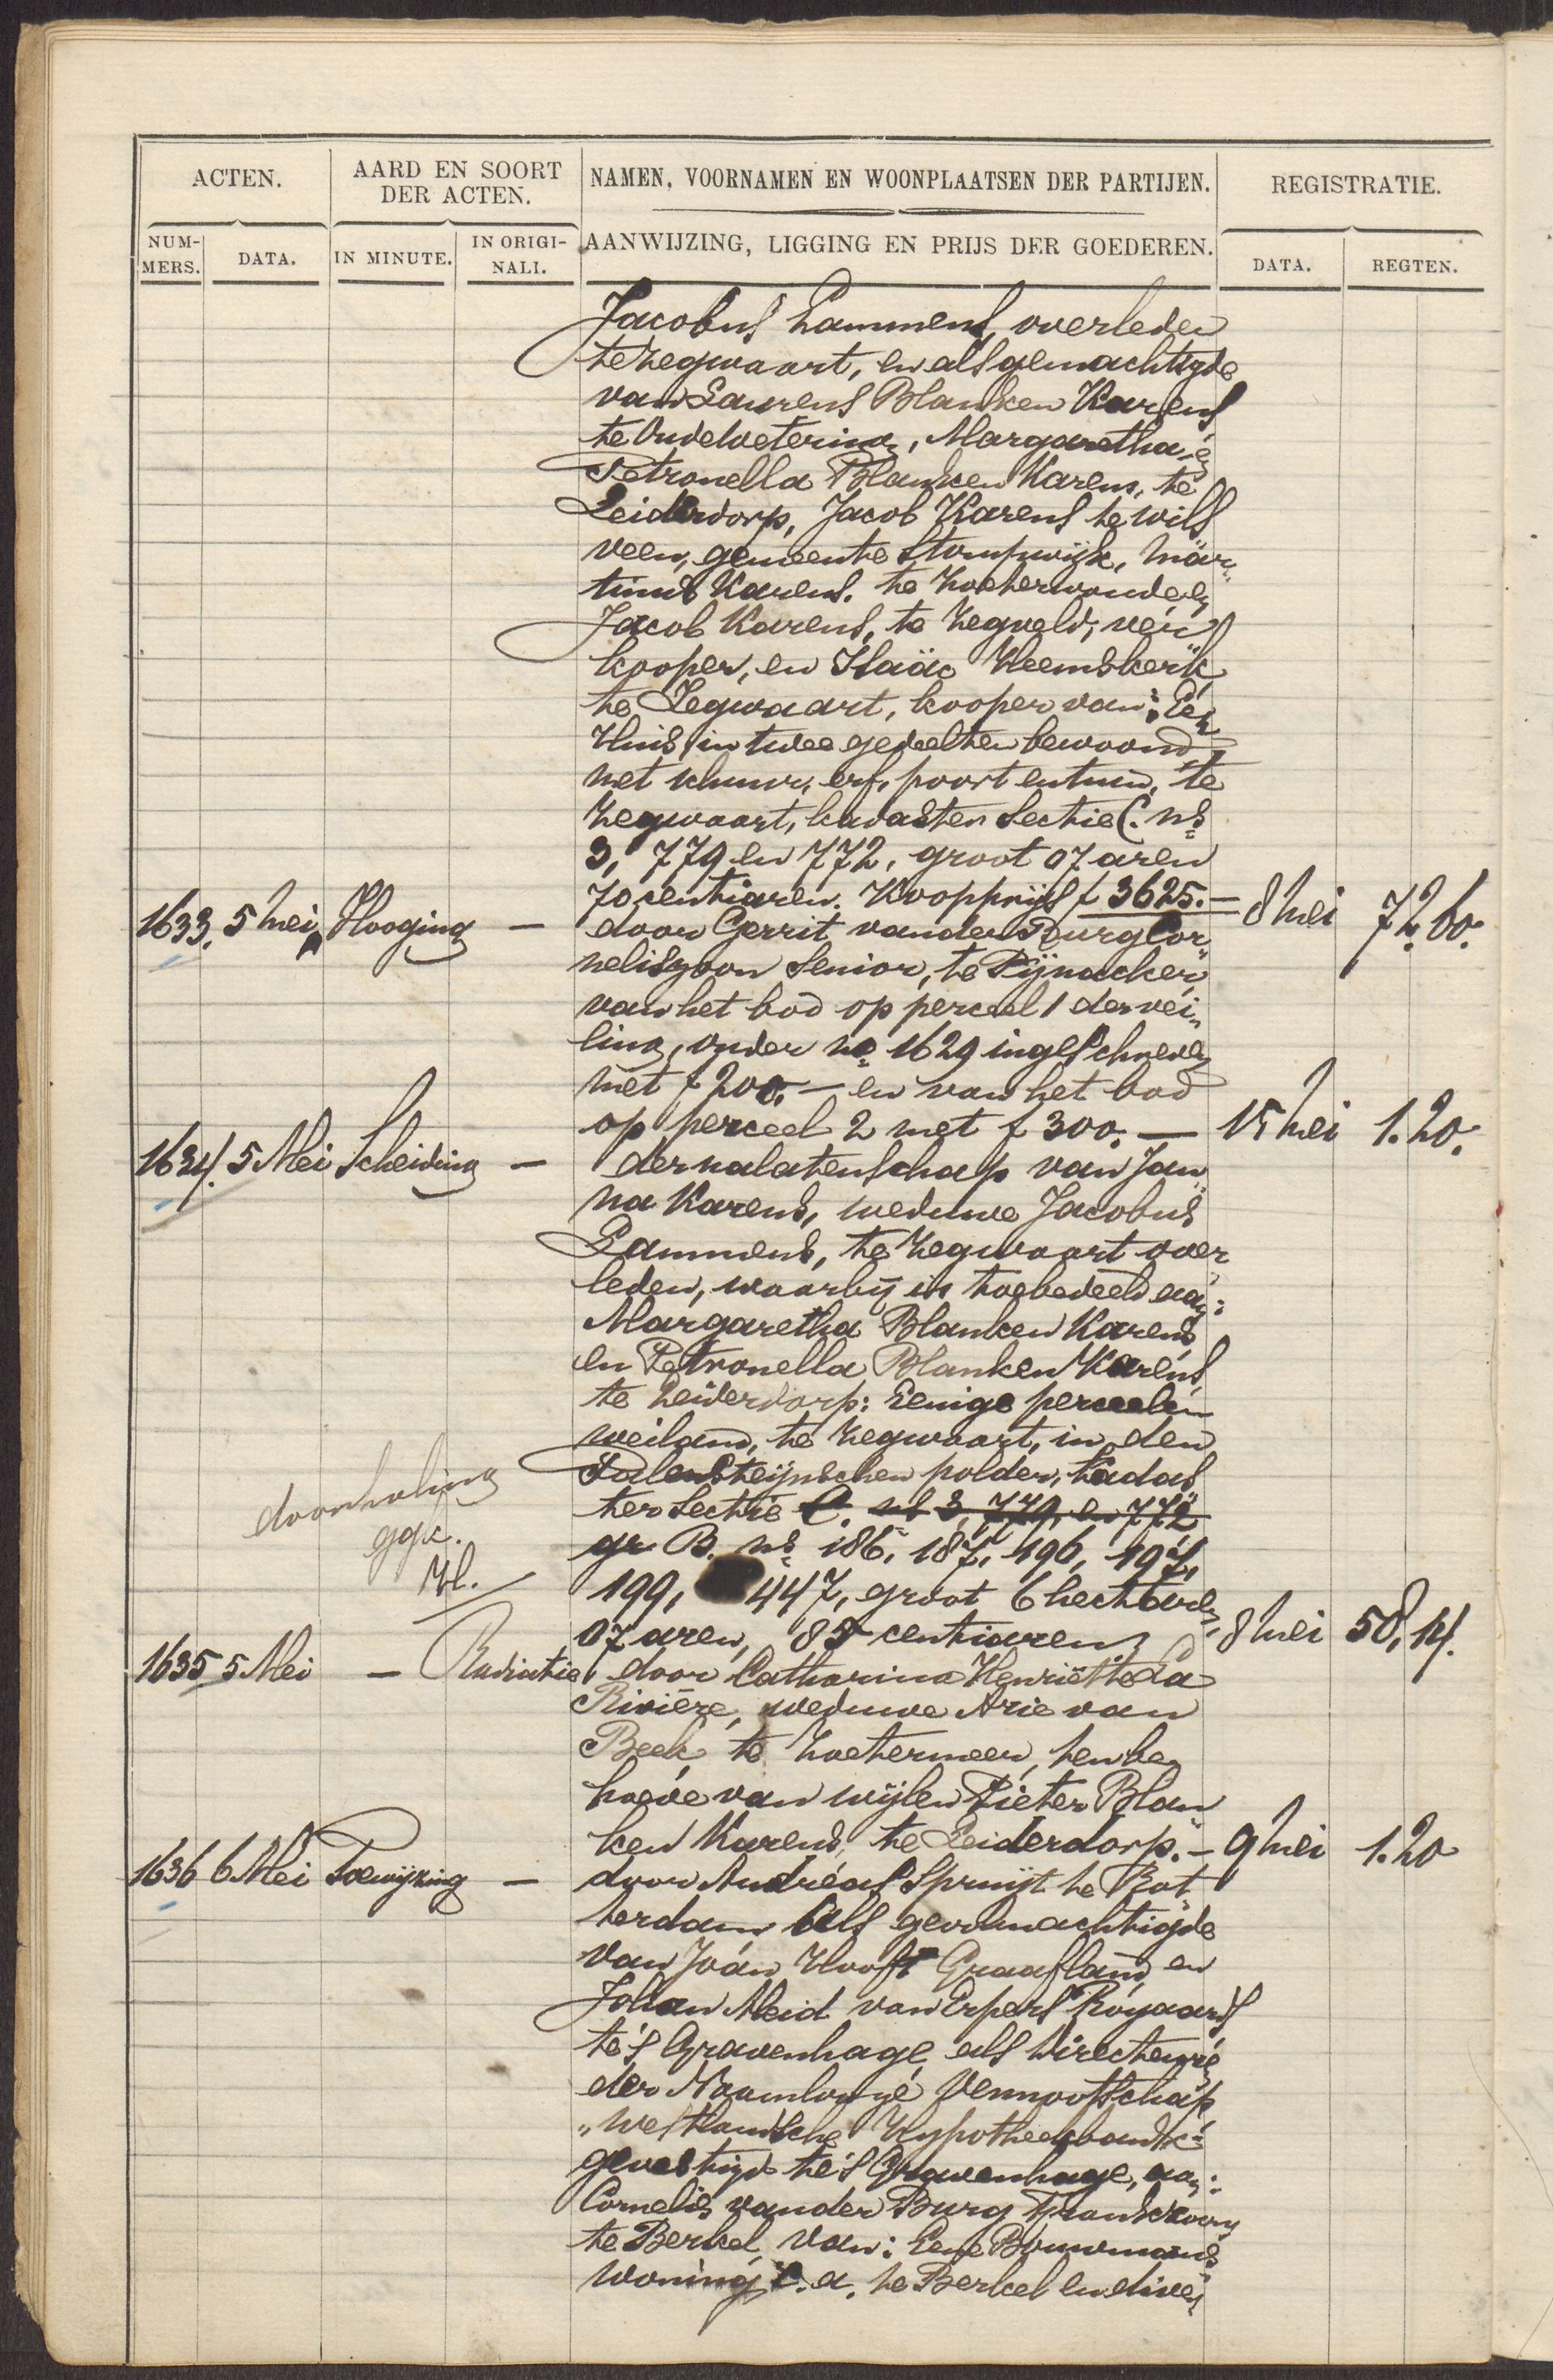 ACTEN.
AARD EN SOORT
DER ACTEN.
NAMEN, VOORNAMEN EN WOONPLAATSEN DER PARTIJEN.
REGISTRATIE.
NUM-
MERS.
DATA.
IN MINUTE.
IN ORIGI-
NALI.
AANWIJZING, LIGGING EN PRIJS DER GOEDEREN.
DATA.
REGTEN.
Jacobus Lammens, overleden
te Zegwaart, en als gemachtigde
van Laurens Blanken Karens
te Oudewetering, Margaretha en
Petronella Blanken Karens, te
Leiderdorp, Jacob Karens te Wils
veen, gemeente Stompwijk, Mar„
tinus Karens. te Zoeterwoude en
Jacob Karens, te Zegveld, ver„
kooper, en Isaäc Heemskerk
te Zegwaart, kooper van: Een
Huis, in twee gedeelten bewoond,
met schuur, erf, poort en tuin, te
Zegwaart, kadaster Sectie C. ns
3, 779 en 772, groot 07 aren
70 centiaren. Koopprijs f 3625.— 8 Mei 72.60.
1633. 5 Mei Hooging — door Gerrit van der Burg Cor„
neliszoon Senior, te Pijnacker,
van het bod op perceel 1 der vei„
ling, onder no 1629 ingeschreven
met f 200.— en van het bod
op perceel 2 met f 300.— 15 Mei 1.20.
1634. 5 Mei Scheiding — der nalatenschap van Jan„
na Karens, weduwe Jacobus
Lammens, te Zegwaart over„
leden, waarbij is toebedeeld aan:
Margaretha Blanken Karens
en Petronella Blanken Karens,
te Leiderdorp: Eenige perceelen
weiland, te Zegwaart, in den
Palensteijnschen polder, Kadas„
ter Sectie C. ns 3, 779, en 772
doorhaling
ggk.
gr B. ns 186, 187, 196, 197,
199, 447, groot 6 hectaren,
07 aren, 85 centiaren 8 Mei 58,14.
1635 5 Mei — Radiatie door Catharina Henriëtte La
Rivière, weduwe Arie van
Beek, te Zoetermeer, ten be„
hoeve van wijlen Pieter Blan„
ken Karens, te Leiderdorp. — 9 Mei 1.20
1636 6 Mei Toewijzing — door Andréas Spruijt te Rot„
terdam als gevolmachtigde
van Joan Hooft Graafland, en
Johan Meid van Erpers Royaards
te 's Gravenhage als Directeuren
der Naamlooze Vennootschap
„Westlandsche Hypotheekbank"
gevestigd te 's Gravenhage, aan:
Cornelis van der Burg Franszoon
te Berkel, van: Eene Bouwmans„
woning c. a. te Berkel en diver„